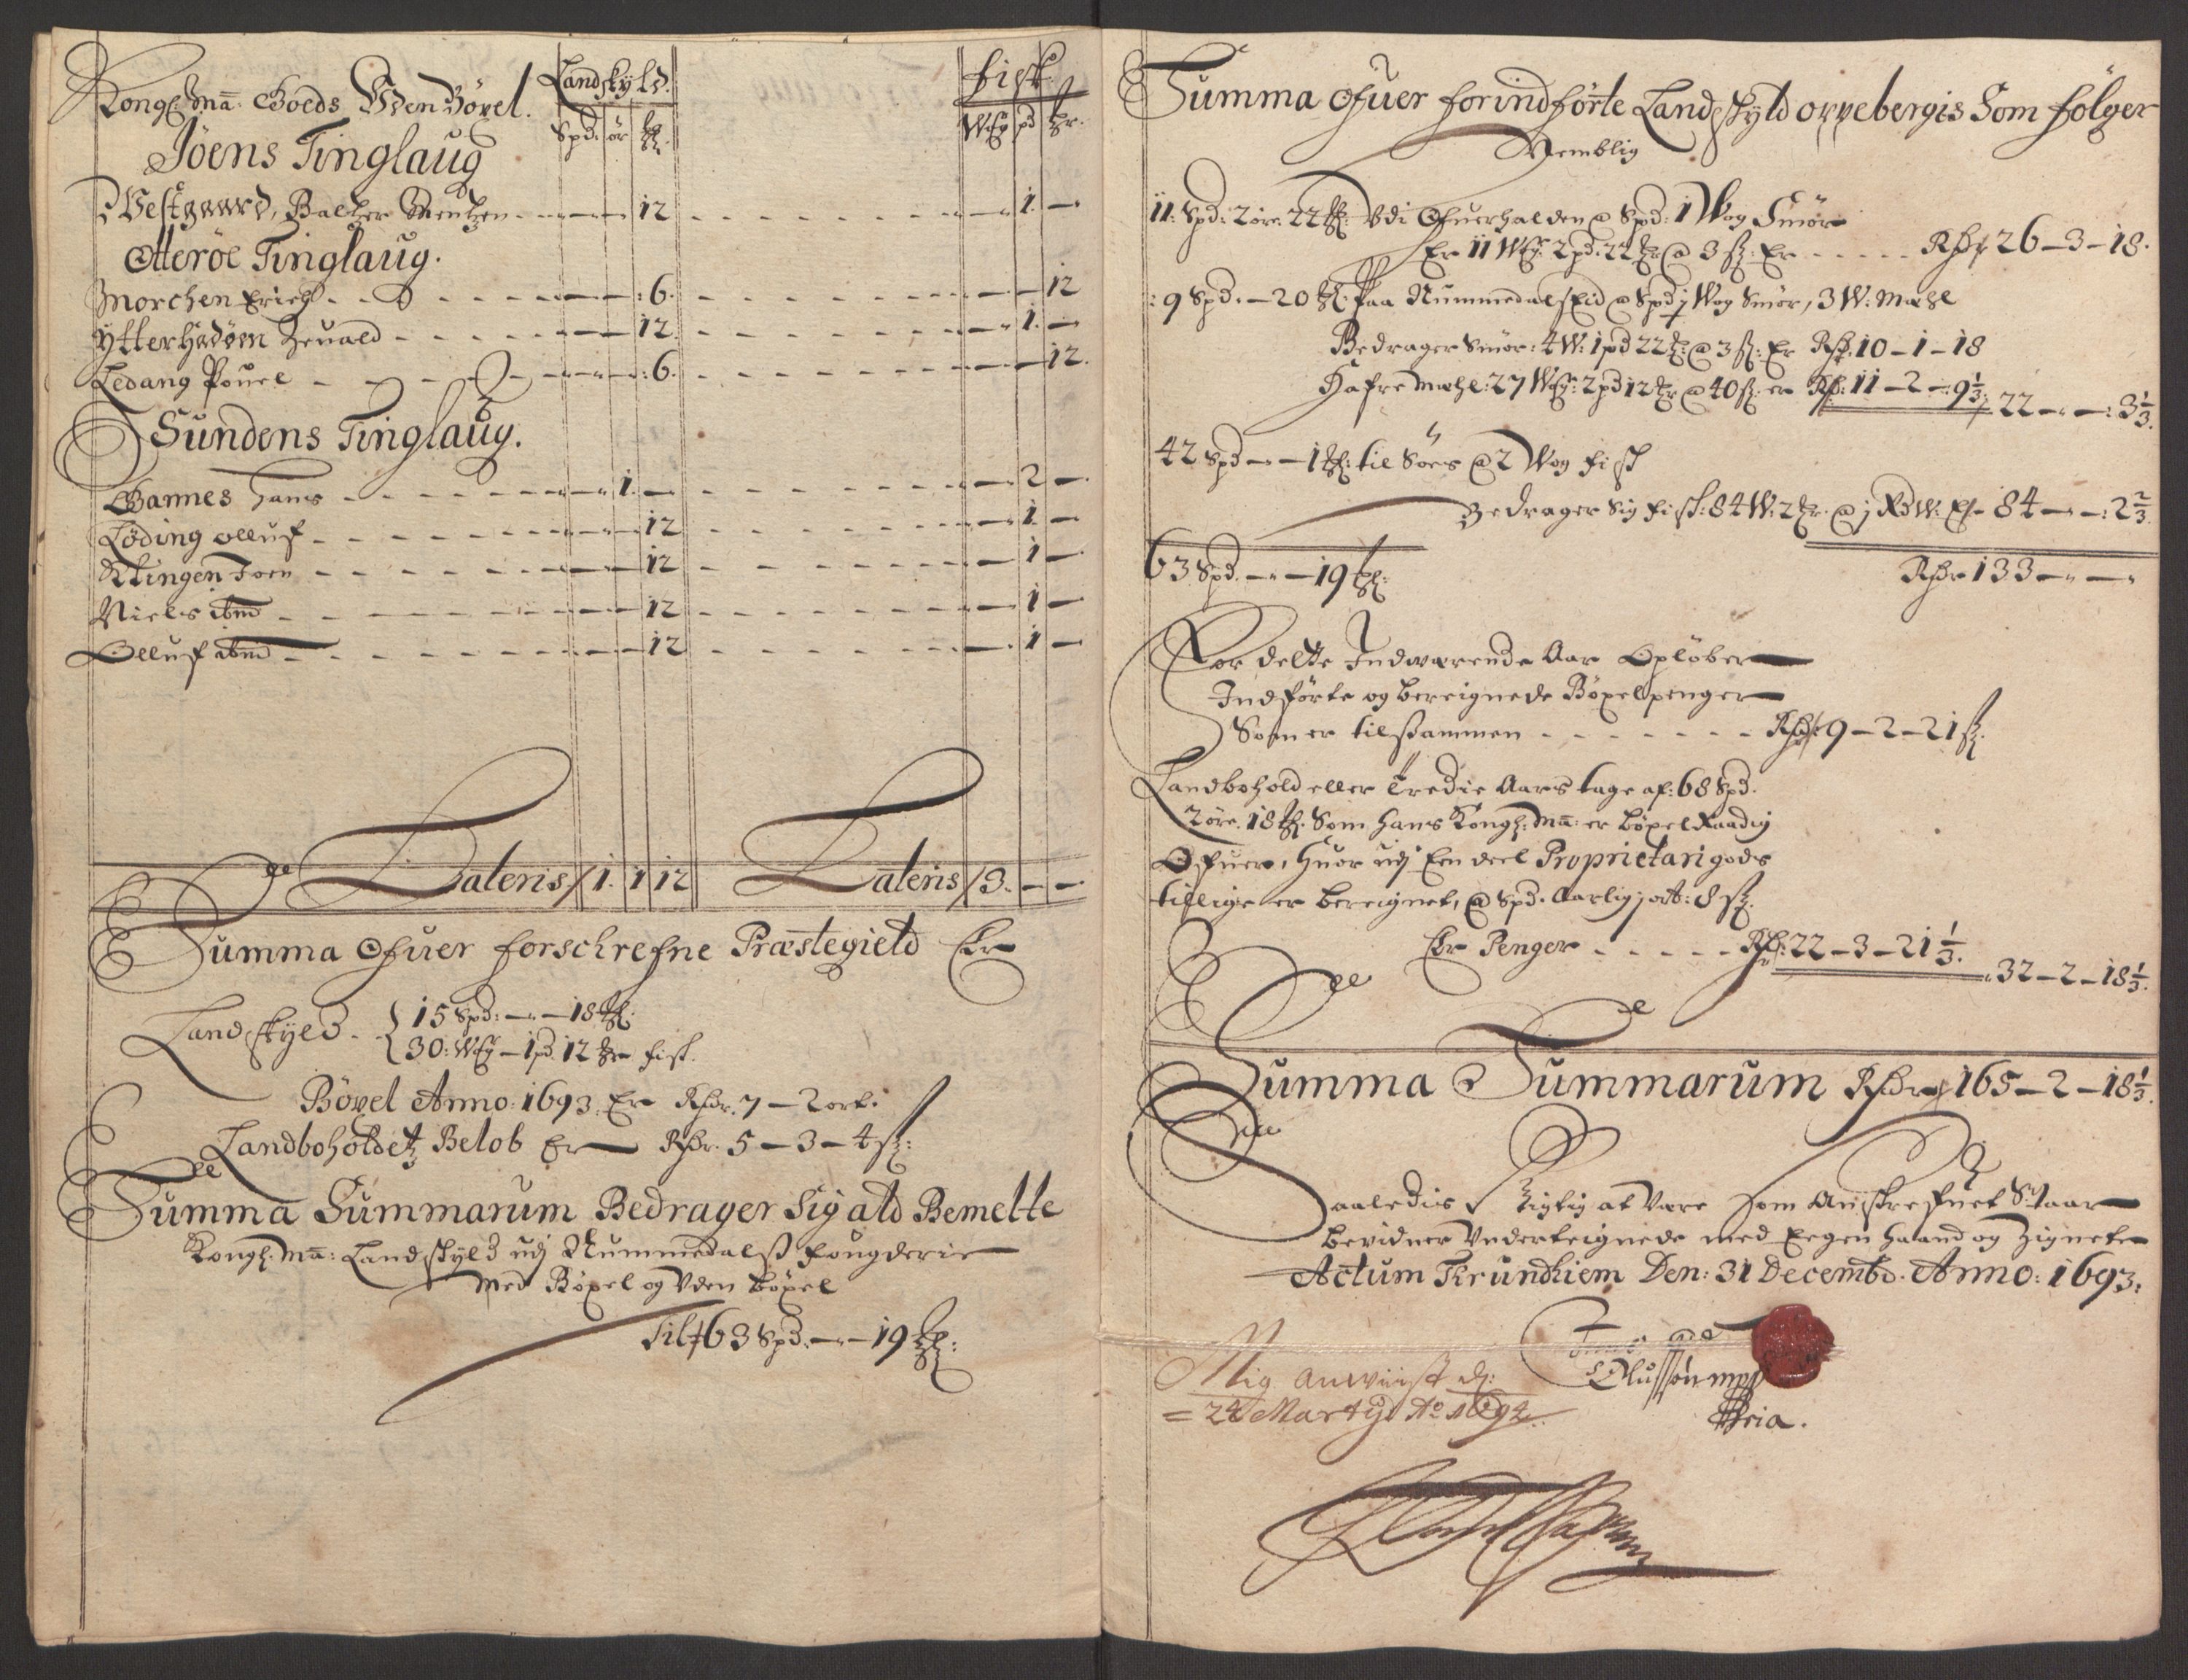 Kongl: Mã: Goeds Uden Böxel. Landskyld. fisk
Spd: ör mk. Wog pd mk.
Jöens Tinglaug
Vestgaard, Baltzer Mentzen - - - 12 - - - 1 -
Otteröe Tinglaug.
Morchen Erich - - - :6. - - - 12
Ytterhadom Zeuald - - - 12. - - - 1 -
Ledang Pouel - - - :6. - - - 12.
Sundens Tinglaug.
Bannes Hans - - - 1. - - - 2 -
Löding Olluf - - - 12 - - - 1 -
Klingen Joen - - - 12 - - - 1 -
Niels ibmd - - - 12 - - - 1 -
Olluf ibmd - - - 12 - - - 1 -
Lateris / 1. 1 12 Lateris / 3. - -
Summa Ofuer forschrefne Præstegield Er
Landskyld - 15 Spd: - - 18 mk:
30: Wog - 1 pd. 12 mk fisk.
Böxel Anno: 1693. Er Rdr. 7 - 2 ort.
Landboholdetz Belöb Er Rdr. 5 - 3 - 4 sz:
Summa Summarum Bedrager Sig ald Bemelte
Kongl: Mã: Landskyld udj Nummedalß fougderie
Med Böxel og Uden böxel
Til 63 Spd. - - 19 mk:
Summa Ofuer forindförte Landskyld oppebergis Som fölger
Nemblig
11: Spd: 2 öre. 22 mk: Udi Ofuerhalden @ Spd: 1 Wog Smör
Er 11 Wog: 2 pd. 22 mk @ 3 sz: Er - - - Rdr 26 - 3 - 18.
:9 Spd. - 20 mk. paa Nummedals Eid @ Spd j Wog Smör, 3 W: Mehl
Bedrager Smör: 4 W: 1 pd 22 mk: @ 3 sz: Er Rdr. 10 - 1 - 18
Hafre Mehl: 27 Wog: 2 pd 12 mk @ 40 sz: er Rdr: 11 - 2 - 9 1/3. 22 - - : 3 1/3.
42 Spd - - 1 mk: til Söes @ 2 Wog fisk
Bedrager Sig fisk: 84 W: 2 mk. @ j Rd W: Er 84 - - : 2 2/3.
63 Spd. - - 19 mk: Rdr 133 - - -
For dette Indwærende Aar Oplöber
Indförte og bereignede Böxelpenger
Som er tilsammen - - - Rdr 9 - 2 - 21 sz.
Landbohold eller Tredie Aars tage af: 68 Spd.
2 öre. 18 mk. Som hans Kongl: Mã: er böxel Raadig
Ofuer, huor udj Een deel Proprietari gods
tillige er bereignet, @ Spd. Aarlig j ort: 8 sz.
Er Penger - - - Rdr: 22 - 3 - 21 1/3. 32 - 2 - 18 1/3.
Summa Summarum Rdr 165 - 2 - 18 1/3.
Saaledis Rigtig at Være som Anskrefuet Staar
bevidner Underteignede med Eegen haand og Zignete
Actum Trundhiem Den: 31 Decembr. Anno: 1693.
Olufsön mpp
ppria.
Mig anwiist d:
= 24 Martij Ao 1694.